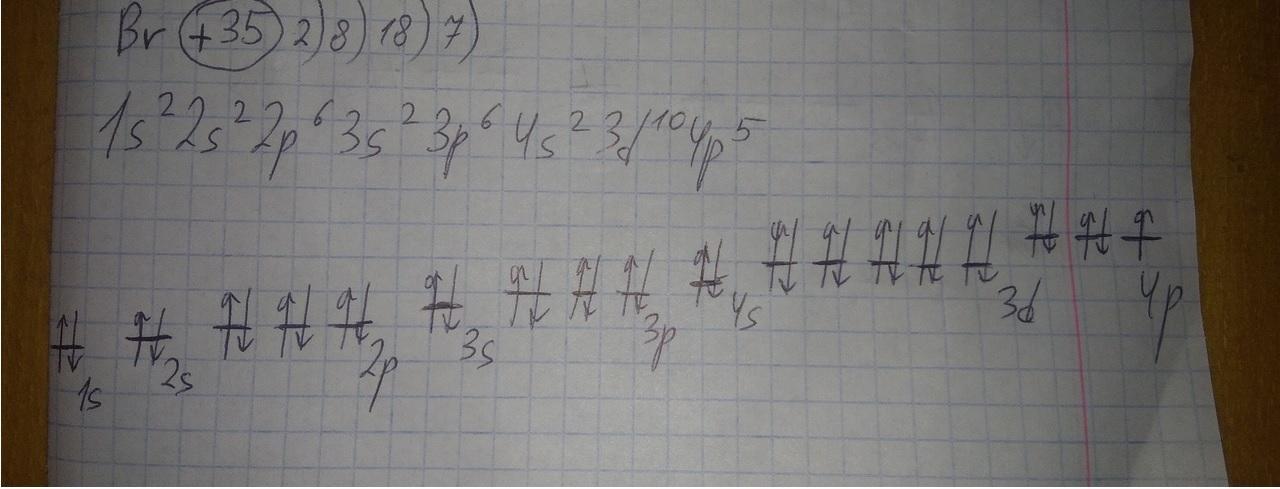 Br (+35) 2) 8) 18) 7)
1s² 2s² 2p⁶ 3s² 3p⁶ 4s² 3d¹⁰ 4p⁵
↑↓ ↑↓ ↑↓ ↑↓ ↑↓ ↑↓ ↑↓ ↑↓ ↑↓ ↑↓ ↑↓ ↑↓ ↑↓ ↑↓ ↑↓ ↑↓ ↑↓ ↑
1s 2s 2p 3s 3p 4s 3d 4p